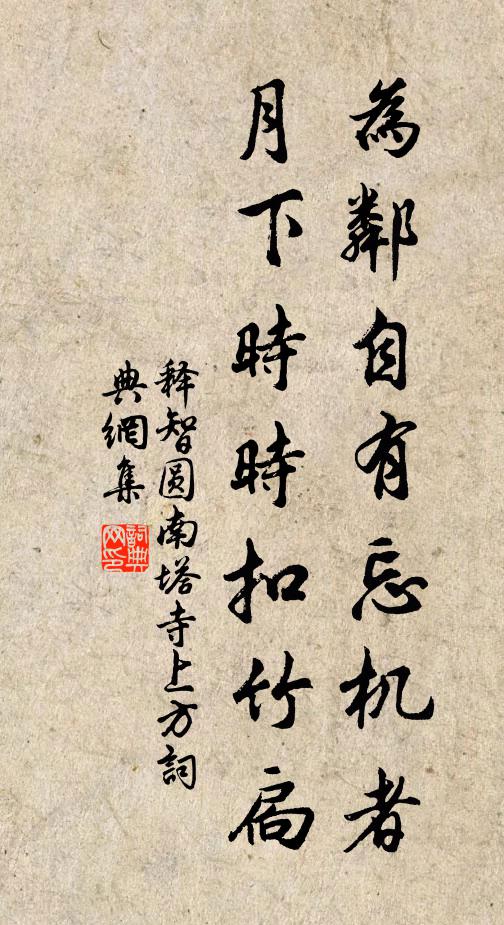 為鄰自有忘机者
月下時時扣竹扃
释智圆南塔寺上方詞
典網集
詞典
网印